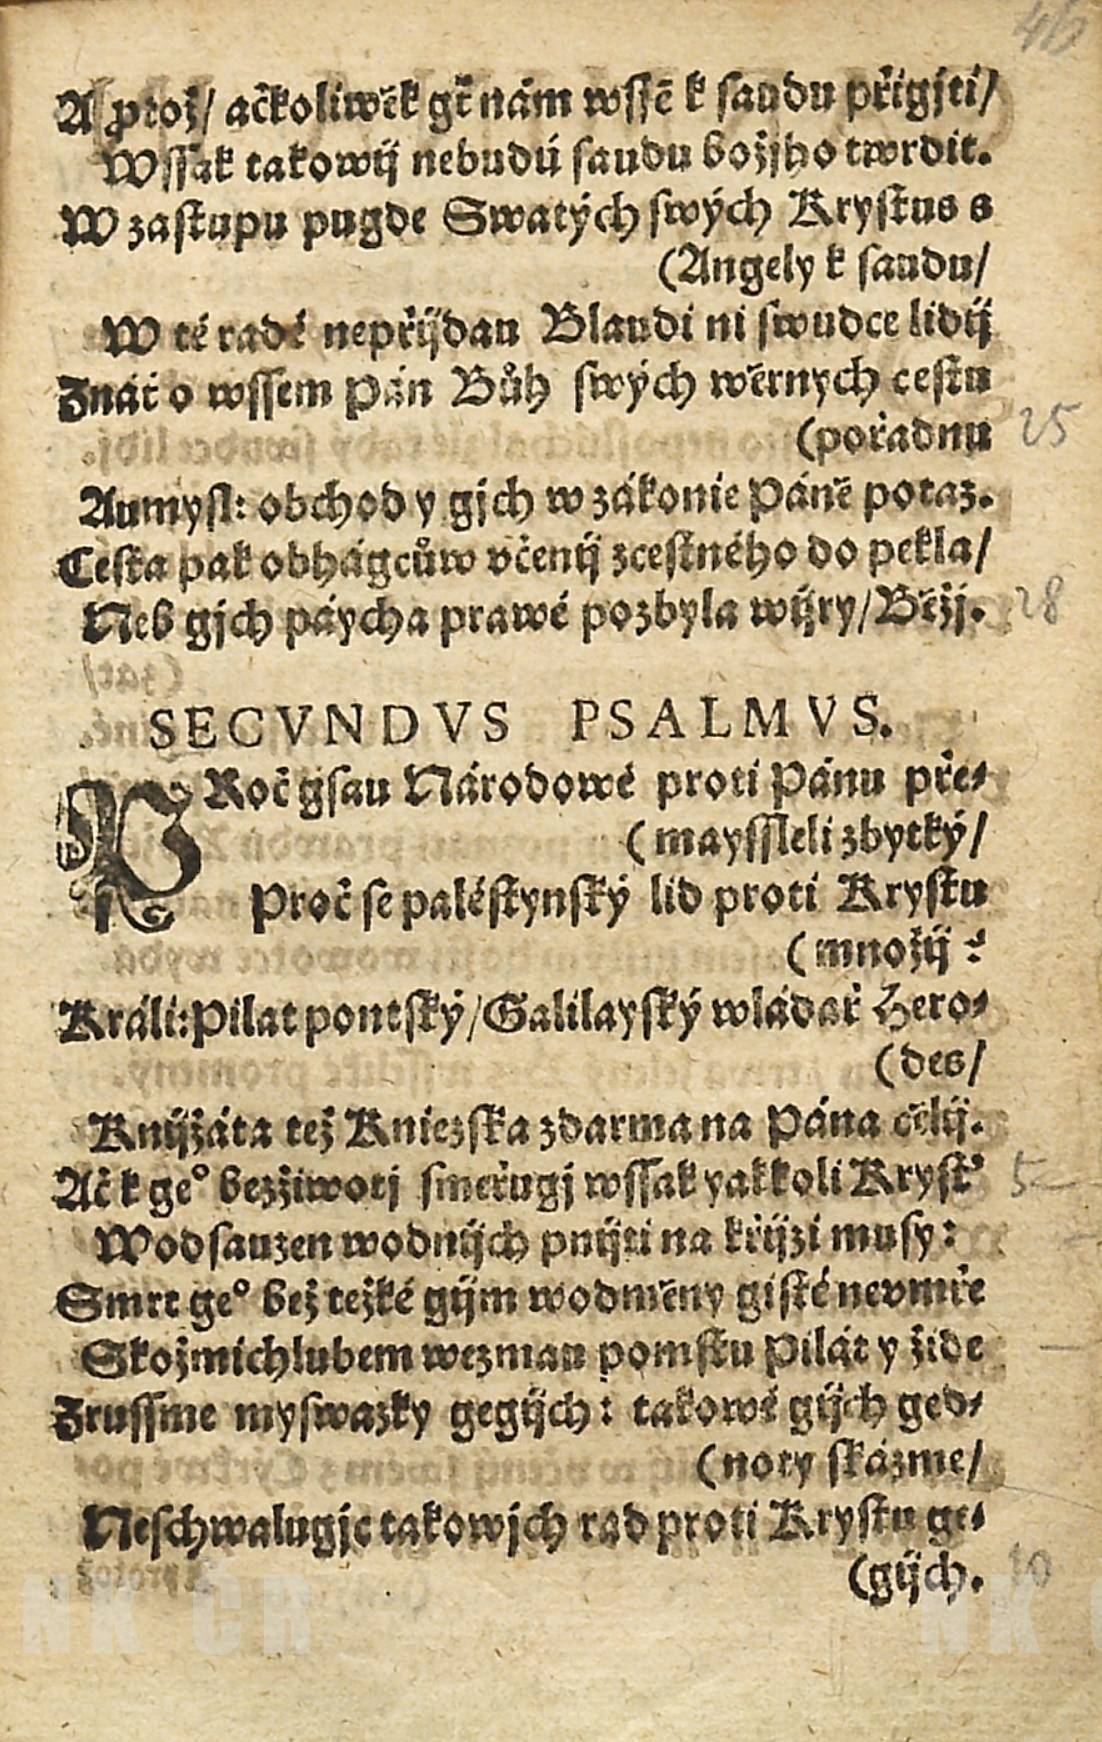 46
A protož/ ačkoliwěk gť nám wssě k saudu přigjti/
Wssak takowij nebudú saudu božjho twrdit.
W zastupu pugde Swatých swých Krystus s
(Angely k saudu/
W té radě nepřijdau Blaudi ni swudce lidij
Znáť o wssem Pán Bůh swých wěrnych cestu
(pořadnu 25
Aumysl: obchod y gjch w zákonie Páně potaz.
Cesta pak obhágcůw včenij zcestného do pekla/
Neb gjch páycha prawé pozbyla wijry/Běžj. 28
SECVNDVS PSALMVS.
PRoč gsau Národowé proti Pánu pře-
(mayssleli zbytký/
Proč se paléstynský lid proti Krystu
(množij?
Králi: Pilat pontský/Galilayský wládař Hero-
(des/
Knijžáta tež Kniezska zdarma na Pána čělij.
Ač k ge° bezžiwotj směřugj wssak yakkoli Kryst' 5
Wodsauzen wodnijch pnijti na křijzi musy:
Smrt ge° bež težké gijm wodměny gisté nevmře
Skožmichlubem wezmau pomstu Pilát y žide
Zrussme myswazky gegijch: takowé gijch ged-
(noty skázme/
Neschwalugjc takowjch rad proti Krystu ge-
(gijch. 10
NK ČR
NK Č